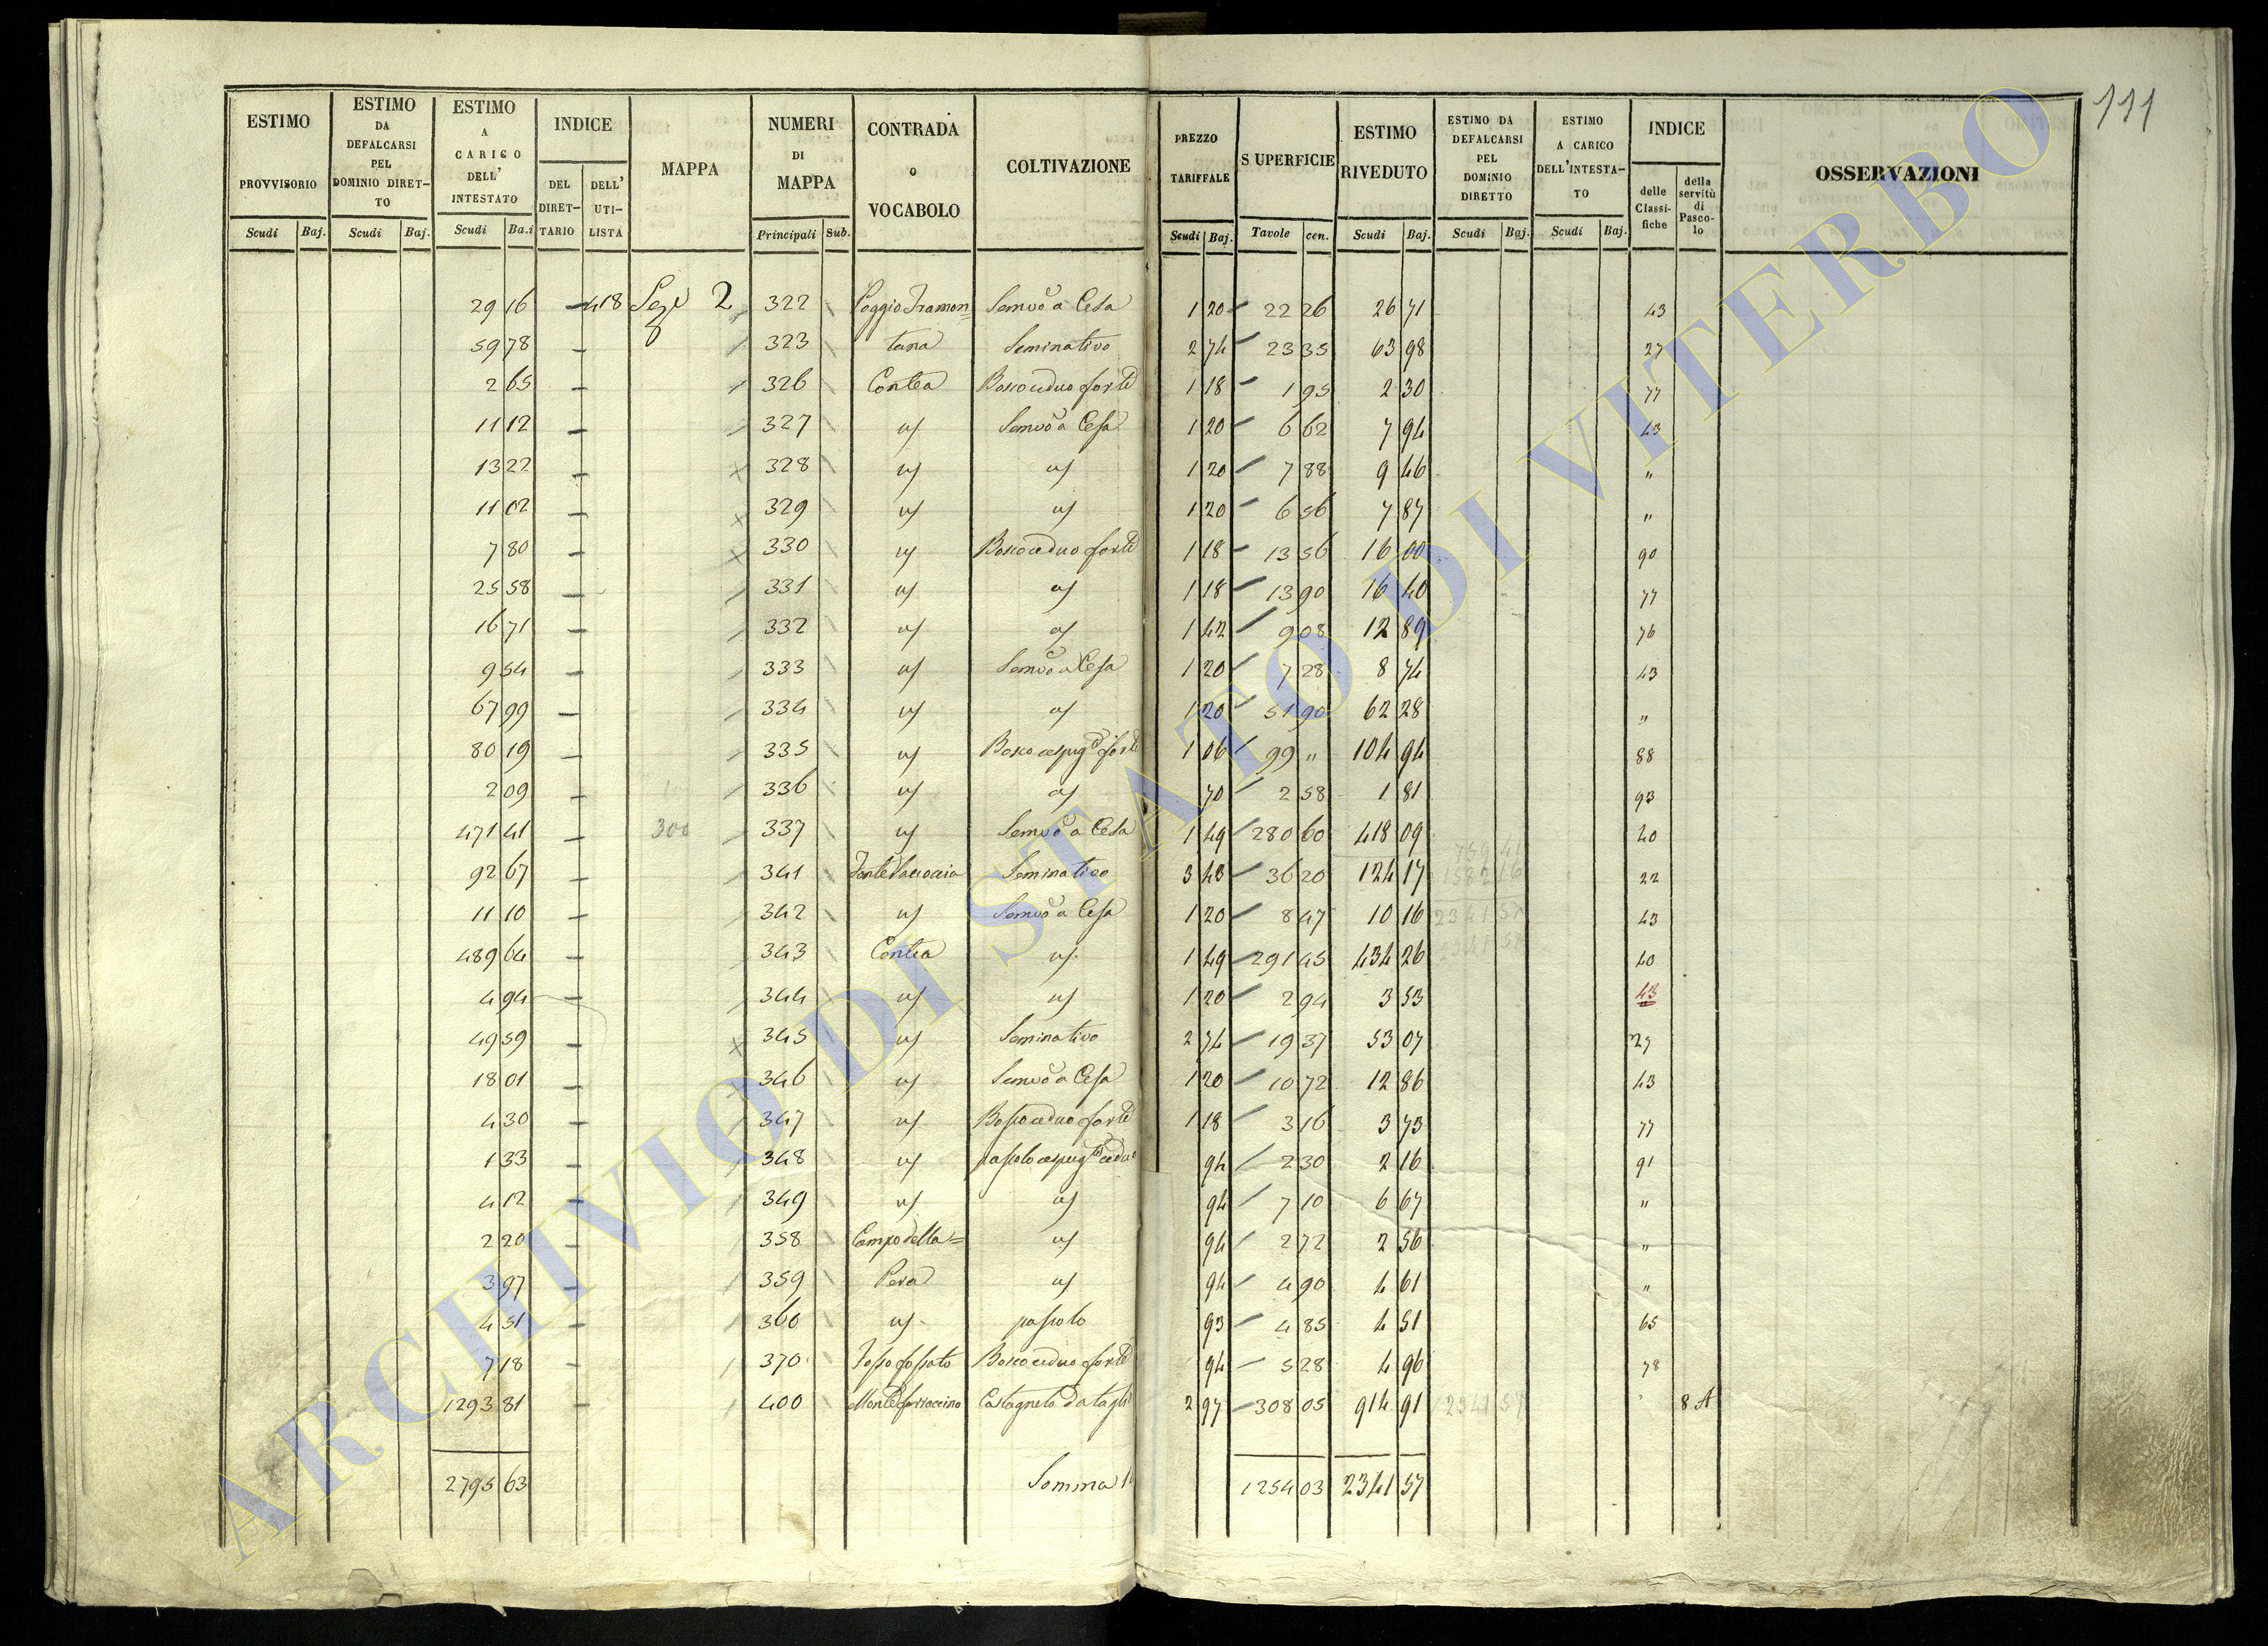 111
ESTIMO PROVVISORIO Scudi Baj. | ESTIMO DA DEFALCARSI PEL DOMINIO DIRET-TO Scudi Baj. | ESTIMO A CARICO DELL' INTESTATO Scudi Ba.i | INDICE DEL DIRET-TARIO DELL' UTI-LISTA | MAPPA | NUMERI DI MAPPA Principali Sub. | CONTRADA o VOCABOLO | COLTIVAZIONE | PREZZO TARIFFALE Scudi Baj. | SUPERFICIE Tavole cen. | ESTIMO RIVEDUTO Scudi Baj. | ESTIMO DA DEFALCARSI PEL DOMINIO DIRETTO Scudi Baj. | ESTIMO A CARICO DELL'INTESTA-TO Scudi Baj. | INDICE delle Classi-fiche della servitù di Pasco-lo | OSSERVAZIONI
29 16 418 Sez.e 2 322 Poggio Tramon= Semvo a Cesa 1 20 22 26 26 71 43
59 78 — 323 tana Seminativo 2 74 23 35 63 98 27
2 65 — 326 Contea Bosco ceduo forte 1 18 1 95 2 30 77
11 12 — 327 " Semvo a Cesa 1 20 6 62 7 94 43
13 22 — 328 " " 1 20 7 88 9 46 "
11 02 — 329 " " 1 20 6 56 7 87 "
7 80 — 330 " Bosco ceduo forte 1 18 13 56 16 00 90
25 58 — 331 " " 1 18 13 90 16 40 77
16 71 — 332 " " 1 42 9 08 12 89 76
9 54 — 333 " Semvo a Cesa 1 20 7 28 8 74 43
67 99 — 334 " " 1 20 51 90 62 28 "
80 19 — 335 " Bosco cespug.to forte 1 06 99 " 104 94 88
2 09 — 336 " " 70 2 58 1 81 93
471 41 — 300 337 " Semvo a Cesa 1 49 280 60 418 09 40
92 67 — 341 Seminativo 3 43 36 20 124 17 22
11 10 — 342 " Semvo a Cesa 1 20 8 47 10 16 43
489 64 — 343 Contea " 1 49 291 45 434 26 40
4 94 — 344 " " 1 20 2 94 3 53 43
49 59 — 345 " Seminativo 2 74 19 37 53 07 27
18 01 — 346 " Semvo a Cesa 1 20 10 72 12 86 43
4 30 — 347 " Bosco ceduo forte 1 18 3 16 3 73 77
1 33 — 348 " pascolo cespug.to ceduo 94 2 30 2 16 91
4 12 — 349 " " 94 7 10 6 67 "
2 20 — 358 Campo della= " 94 2 72 2 56 "
3 97 — 359 Pera " 94 4 90 4 61 "
4 51 — 360 " pascolo 93 4 85 4 51 65
7 18 — 370 Fosso fossato Bosco ceduo forte 94 5 28 4 96 78
1293 81 — 400 Monte fornaccino Castagneto da taglio 2 97 308 05 914 91 8 A
2795 63 Somma 1254 03 2341 57
ARCHIVIO DI STATO DI VITERBO